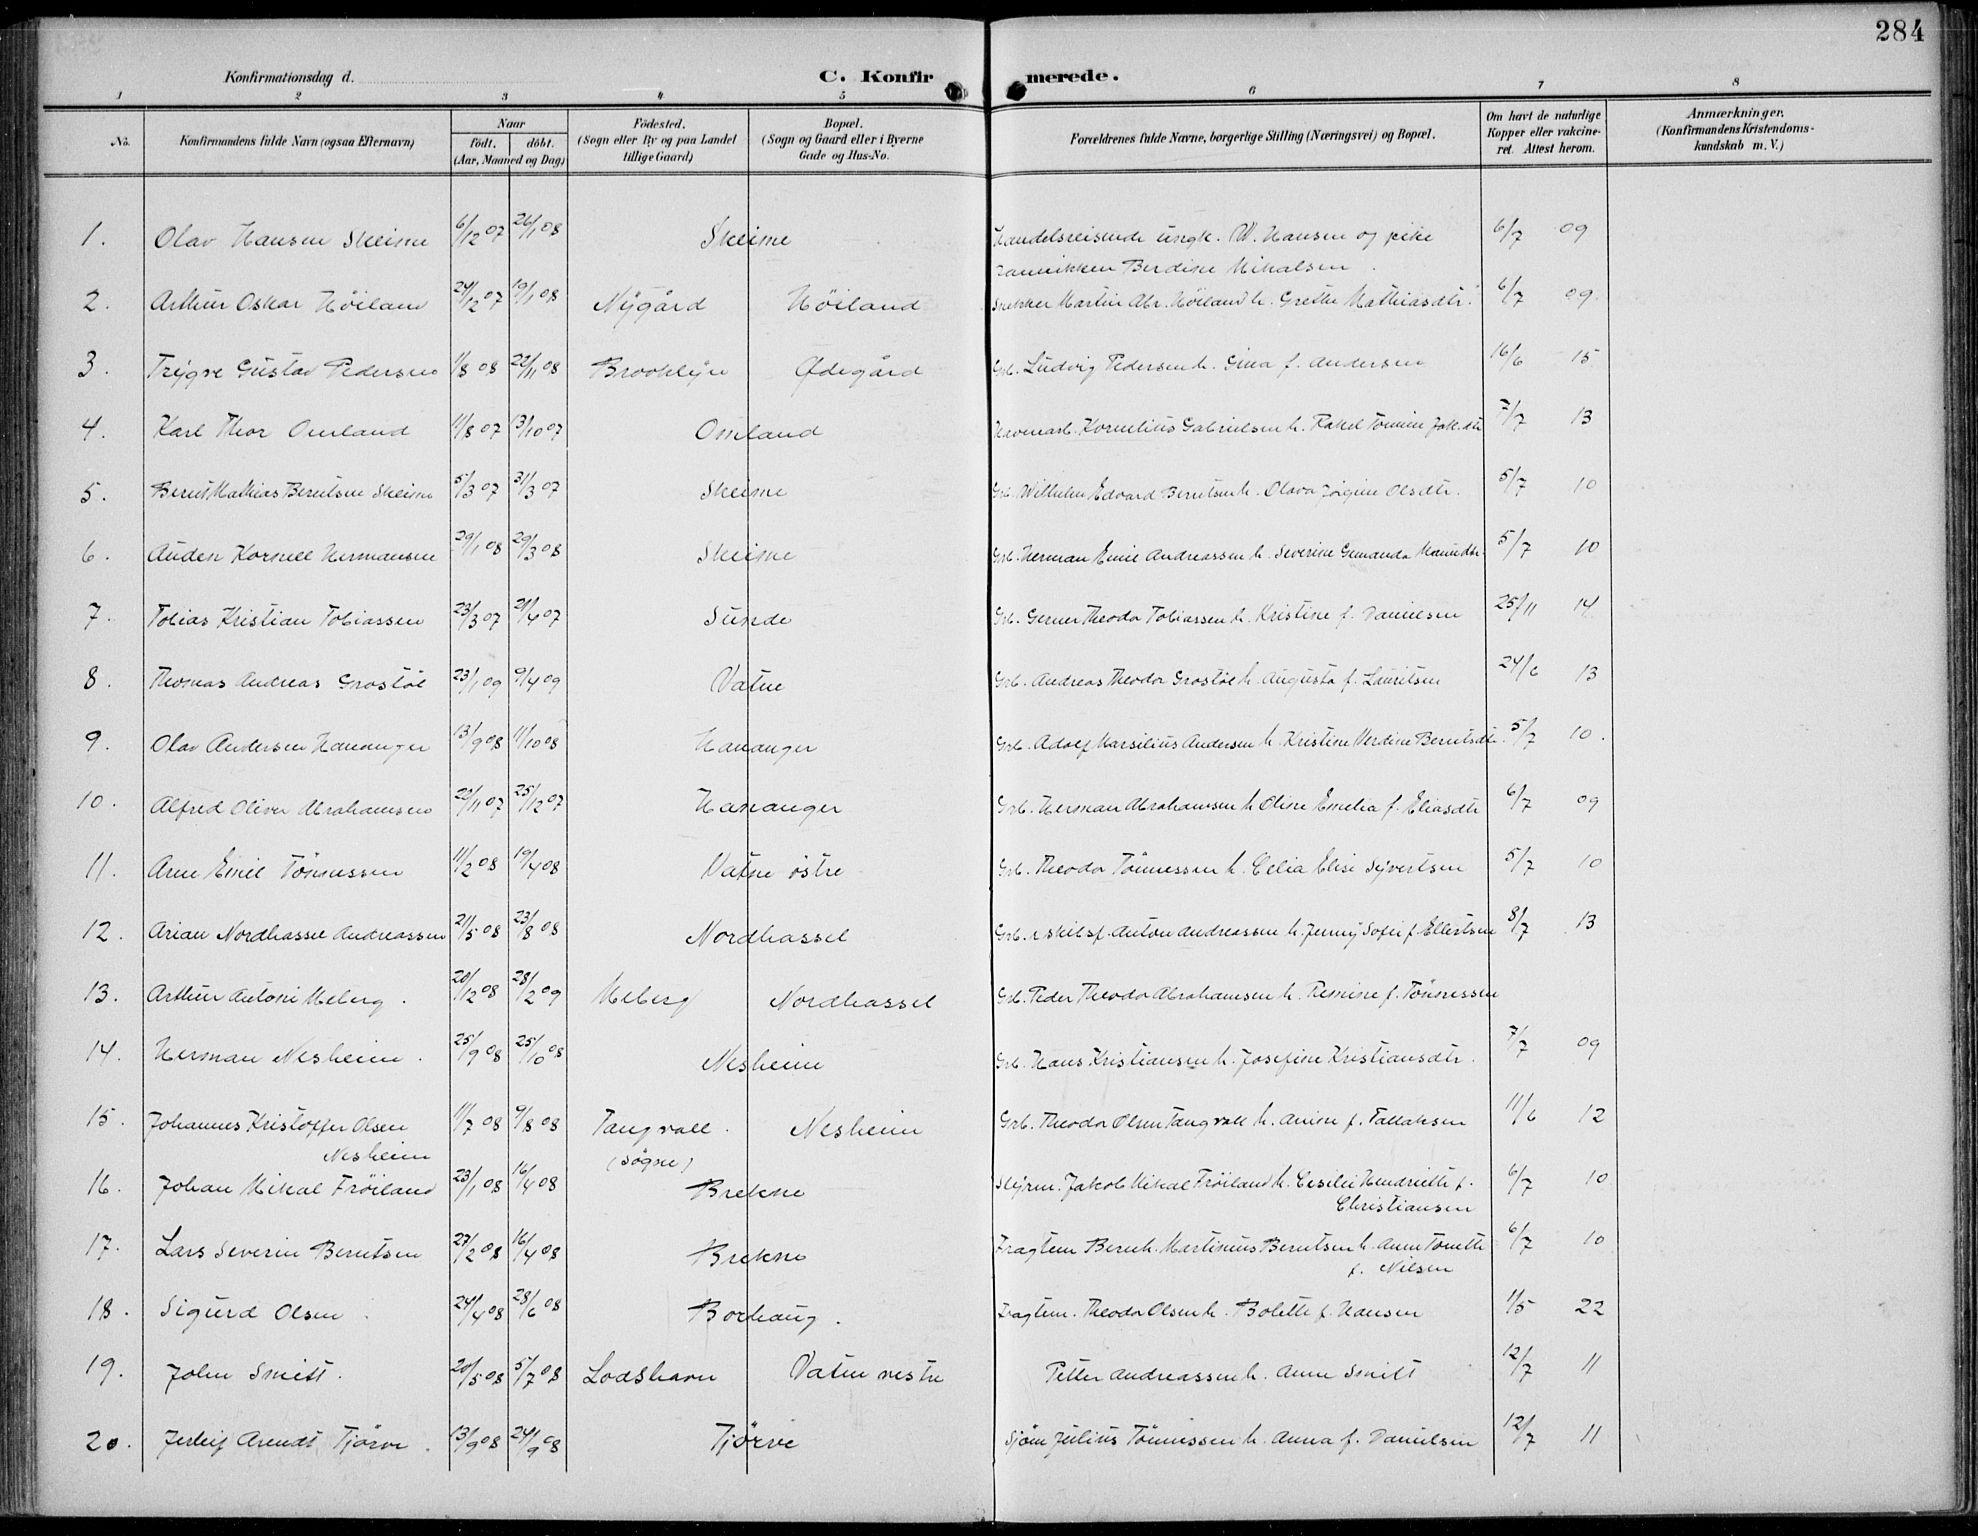 284
Konfirmationsdag d. C. Konfirmerede.
1 2 3 4 5 6 7 8
No. Konfirmandens fulde Navn (ogsaa Efternavn) Naar født. døbt. (Aar, Maaned og Dag) Fødested. (Sogn eller By og paa Landet tillige Gaard) Bopæl. (Sogn og Gaard eller i Byerne Gade og Hus-No. Forældrenes fulde Navne, borgerlige Stilling (Næringsvei) og Bopæl. Om havt de naturlige Kopper eller vakcineret. Attest herom. Anmærkninger. (Konfirmandens Kristendomskundskab m. V.)
1. Olav Hansen Skeime 6/12 07 26/1 08 Skeime Handelsreisende ungk. W. Hansen og pike
Jannikken Berdine Mikalsen 6/7 09
2. Arthur Oskar Höiland 24/12 07 19/1 08 Nÿgård Höiland Snekker Martin Abr. Höiland h. Grethe Mathiasdtr. 6/7 09
3. Trÿgve Gustav Pedersen 1/8 08 22/11 08 Brooklÿn Ødegård Grb. Ludvig Pedersen h. Gina f. Andersen 16/6 15
4. Karl Thor Omland 11/8 07 13/10 07 Omland Havnearb. Kornelius Gabrielsen h. Rakel Tomine Jak.dtr 7/7 13
5. Bernt Mathias Berntsen Skeime 5/3 07 31/3 07 Skeime Grb. Wilhelm Edvard Berntsen h. Olava Jörgine Olsdtr. 5/7 10
6. Auden Kornell Hermansen 29/1 08 29/3 08 Skeime Grb. Herman Emil Andreassen h. Severine Gunanda 5/7 10
7. Tobias Kristian Tobiassen 23/3 07 21/4 07 Sunde Grb. Gerner Theodor Tobiassen h. Kristine f. Danielsen 25/11 14
8. Thomas Andreas Grostöl 23/1 09 9/4 09 Vatne Grb. Andreas Theodor Grostöl h. Augusta f. Lauritsen 24/6 13
9. Olav Andersen Hananger 13/9 08 11/10 08 Hananger Grb. Adolf Marsilius Andersen h. Kristine Verdine Berntsdtr. 5/7 10.
10. Alfred Oliver Abrahamsen 29/11 07 25/12 07 Hananger Grb. Herman Abrahamsen h Oline Emelia f. Eliasdtr 6/7 09
11. Arne Emil Tönnessen 11/2 08 19/4 08 Vatne östre Grb. Theodor Tönnessen h. Celia Elise Sÿvertsen 5/7 10
12. Arian Nordhassel Andreassen 21/5 08 23/8 08 Nordhassel Grb. & skibsf. Anton Andreassen h. Jenny Sofie f Ellertsen 8/7 13
13. Arthur Antoni Meberg. 20/12 08 28/2 09 Meberg Nordhassel Grb. Peder Theodor Abrahamsen h. Remine f. Tönnessen
14. Herman Nesheim. 25/9 08 25/10 08 Nesheim Grb. Hans Kristiansen h. Josefine Kristiansdtr. 7/7 09
15. Johannes Kristoffer Olsen
Nesheim 11/7 08 9/8 08 Tangvall.
(Sögne) Nesheim Grb. Theodor Olsen Tangvall h. Anine f. Tallaksen 11/6 12
16. Johan Mikal Fröiland 23/1 08 16/4 08 Brekne Stÿrm. Jakob Mikal Fröiland h. Cesilie Hendriette f.
Christiansen 6/7 10
17. Lars Severin Berntsen 27/2 08 16/4 08 Brekne Fragtem Bernh. Martinius Berntsen h. Anne Tonette
f. Nilsen 6/7 10
18. Sigurd Olsen 24/4 08 28/6 08 Borhaug. Fragtem. Theodor Olsen h. Bolette f. Hansen 1/5 22
19. John Smitt. 20/5 08 5/7 08 Lodshavn Vatne vestre Petter Andreassen h. Anne Smitt 12/7 11
20. Arendt Tjörve. 13/9 08 24/9 08 Tjörve Sjöm Julius Tönnessen h. Anna f. Danielsen 12/7 11